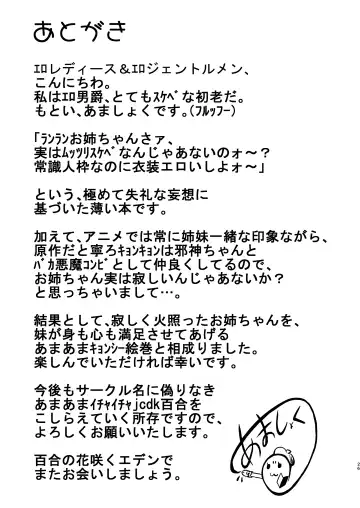 あとがき
ｴﾛレディース＆ｴﾛジェントルメン、
こんにちわ。
私はｴﾛ男爵、とてもｽｹﾍﾞな初老だ。
もとい、あましょくです。(ﾌﾙｯﾌｰ)
｢ﾗﾝﾗﾝお姉ちゃんさァ、
実はﾑｯﾂﾘｽｹﾍﾞなんじゃあないのォ～？
常識人枠なのに衣装エロいしよォ～｣
という、極めて失礼な妄想に
基づいた薄い本です。
加えて、アニメでは常に姉妹一緒な印象ながら、
原作だと寧ろｷｮﾝｷｮﾝは邪神ちゃんと
ﾊﾞｶ悪魔ｺﾝﾋﾞとして仲良くしてるので、
お姉ちゃん実は寂しいんじゃあないか？
と思っちゃいまして…。
結果として、寂しく火照ったお姉ちゃんを、
妹が身も心も満足させてあげる
あまあまｷｮﾝｼｰ絵巻と相成りました。
楽しんでいただければ幸いです。
今後もサークル名に偽りなき
あまあまｲﾁｬｲﾁｬjcdk百合を
こしらえていく所存ですので、
よろしくお願いいたします。
百合の花咲くエデンで
またお会いしましょう。
あましょく